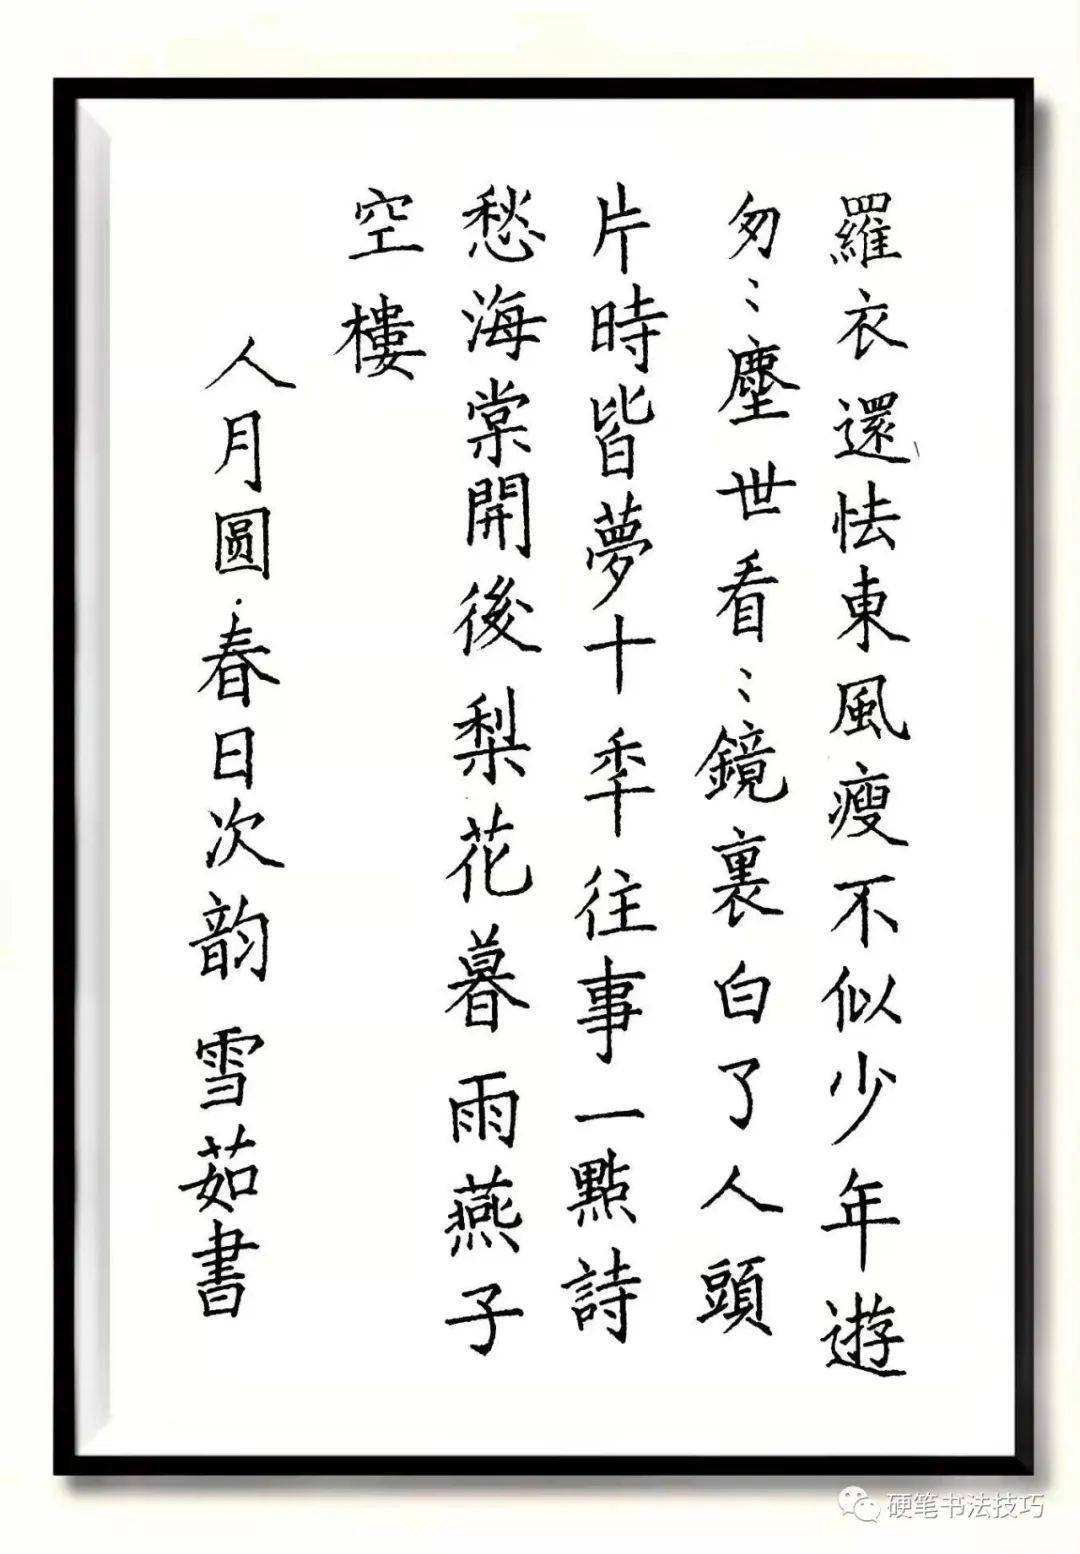 羅衣還怯東風瘦不似少年遊
匆〻塵世看〻鏡裏白了人頭
片時皆夢十季往事一點詩
愁海棠開後梨花暮雨燕子
空樓
人月圆·春日次韵 雪茹書
硬笔书法技巧